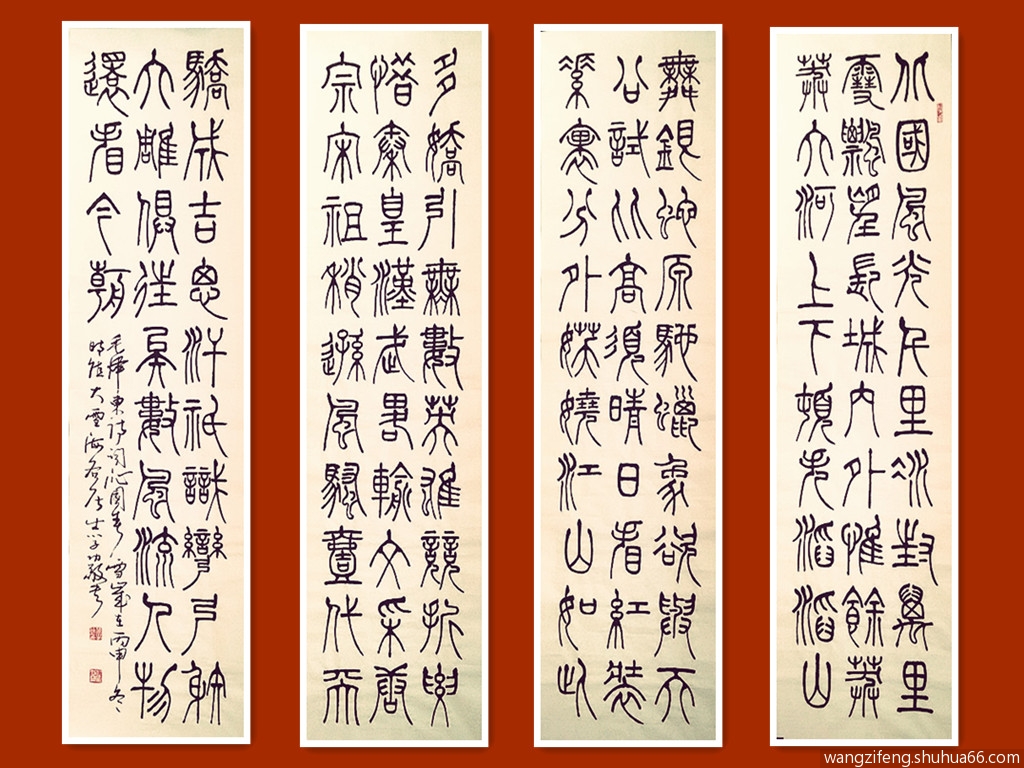 北國風光千里冰封萬里
雪飄望長城內外惟餘莽
莽大河上下頓失滔滔山
舞銀蛇原馳蠟象欲與天
公試比高須晴日看紅裝
素裹分外妖嬈江山如此
多嬌引無數英雄競折要
惜秦皇漢武略輸文采唐
宗宋祖稍遜風騷壹代天
驕成吉思汗祇識彎弓射
大雕俱往矣數風流人物
還看今朝
毛澤東詩詞沁園春雪歲在丙申冬
大雪
wangzifeng.shuhua66.com